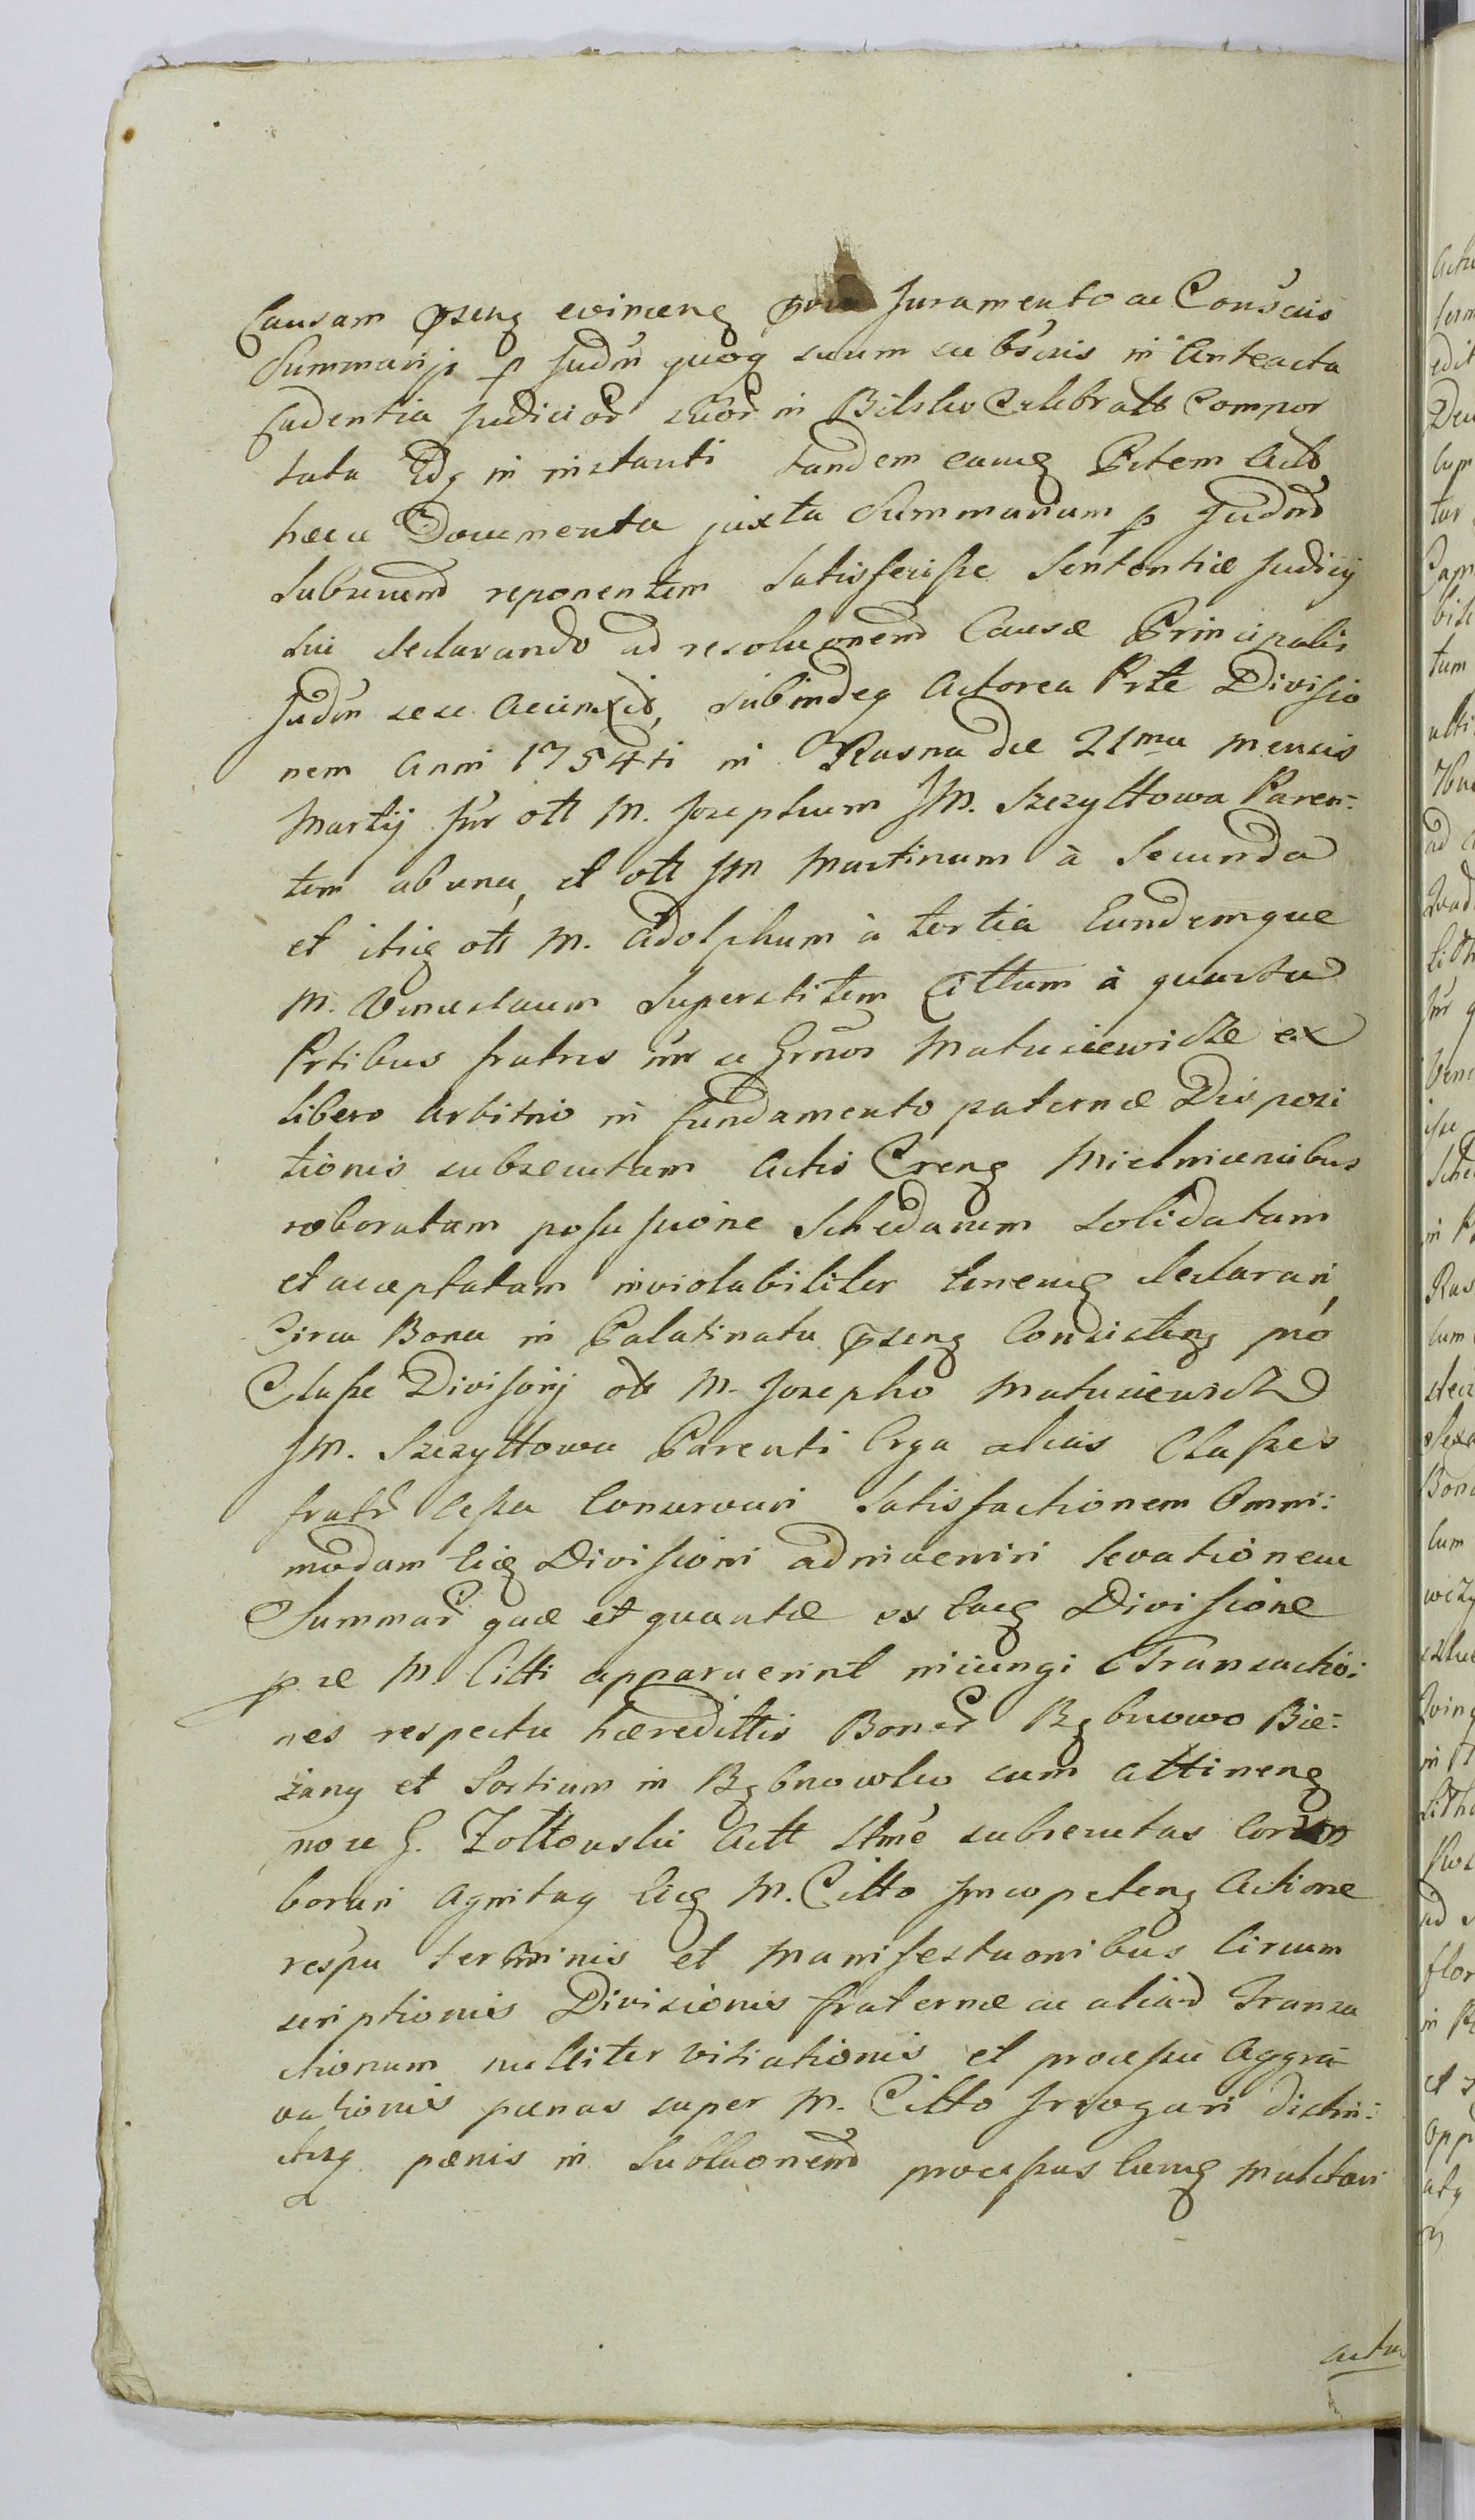 Causam pseng evinceng Juramento ac Conscriis
Summarijs p Judm quoq suum subscris in Anteacta
Cadentia Judicior suor in Bilsko Celebratt Compor
tata Idq in instanti tandem eamq Prtem Act
hæcce Documenta juxta Summarium p Judm
Subscrium reponentem Satisfecisse Sententiæ Judicij
sui declarando ad resoluonem Causæ Principalis
Judm sese Accinxit, Subindeq Actorea Prte Divisio
nem Anni 1754ti in Rasna die 21ma mensis
Martij Inr olt M. Josephum JM. Szczyttowa Paren:
tem ab una, et olt JM Martinum à Secunda
et itiq olt M. Adolphum à tertia Eundemque
M. Venceslaum Superstitem Cittum à quarta
Prtibus fratres inr se Grnos Matusiewicze ex
libero Arbitrio in fundamento paternæ Disposi
tionis subsecutam Actis Creng Mielnicensibus
roboratam possessione Schedarum solidatam
et acceptatam inviolabiliter teneng declarari,
Circa Bona in Palatinatu pseng Consisteng pro
Classe Divisorij olt M. Josepho Matusiewicz
JM. Szczyttowa Parenti Erga alias Classes
fratr cessa Conservari Satisfactionem Omni:
modam Eieq Divisioni adinveniri levationem
Summar quæ et quantæ ex Eaeq Divisione
p se M. Citti apparuerint iniungi Transactio:
nes respectu hæredittis Bonor Rębnowo Bie:
żany et Sortium in Rębnowko cum attineng
no se G. Zottowski Actt Stme subsecutas Corro
borari Agnitaq Eieq M. Citto Incopeteng Actione
respu terminis et Manifestaonibus Circum
scriptionis Divisionis fraternæ ac aliar Transa
ctionum nulliter vitiationis et processu Aggra
vationis pænas super M. Citto Irrogari distin:
ctisq pænis in Subluonem processus Euneq mulctari
&
actu